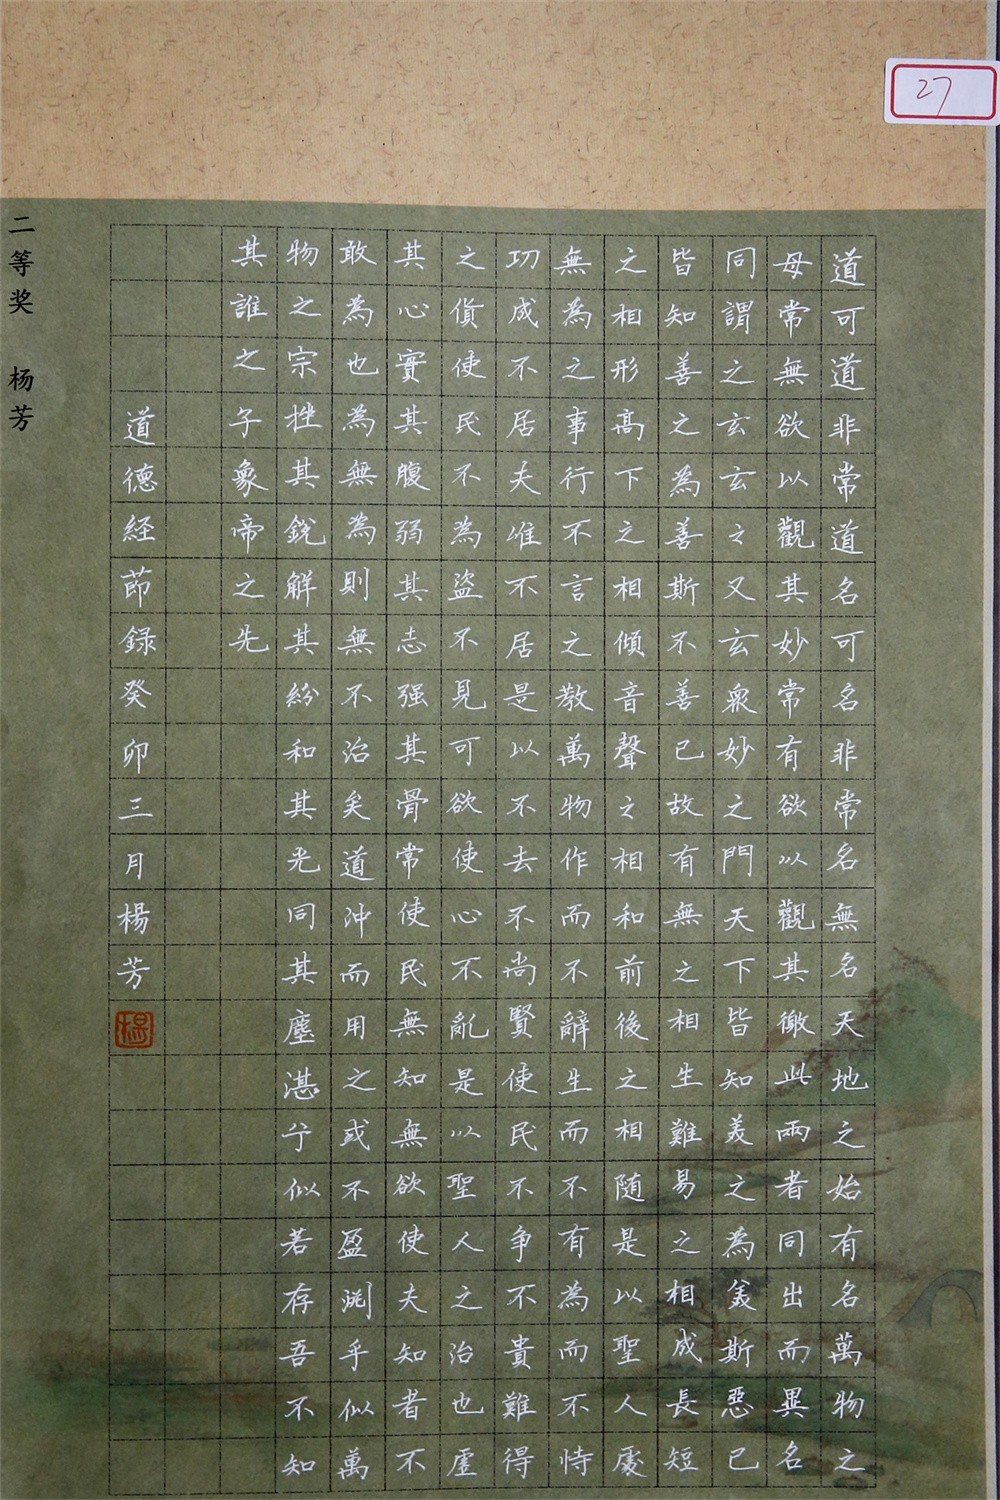 27
道可道非常道名可名非常名無名天地之始有名萬物之
母常無欲以觀其妙常有欲以觀其徼此兩者同出而異名
同謂之玄玄之又玄衆妙之門天下皆知美之為美斯惡已
皆知善之為善斯不善已故有無之相生難易之相成長短
之相形高下之相傾音聲之相和前後之相随是以聖人處
無為之事行不言之教萬物作而不辭生而不有為而不恃
功成不居夫唯不居是以不去不尚賢使民不争不貴難得
之貨使民不為盜不見可欲使心不亂是以聖人之治也虛
其心實其腹弱其志强其骨常使民無知無欲使夫知者不
敢為也為無為則無不治矣道沖而用之或不盈淵乎似萬
物之宗挫其銳解其紛和其光同其塵湛兮似若存吾不知
其誰之子象帝之先
道德経節録癸卯三月楊芳
楊
二等奖 杨芳